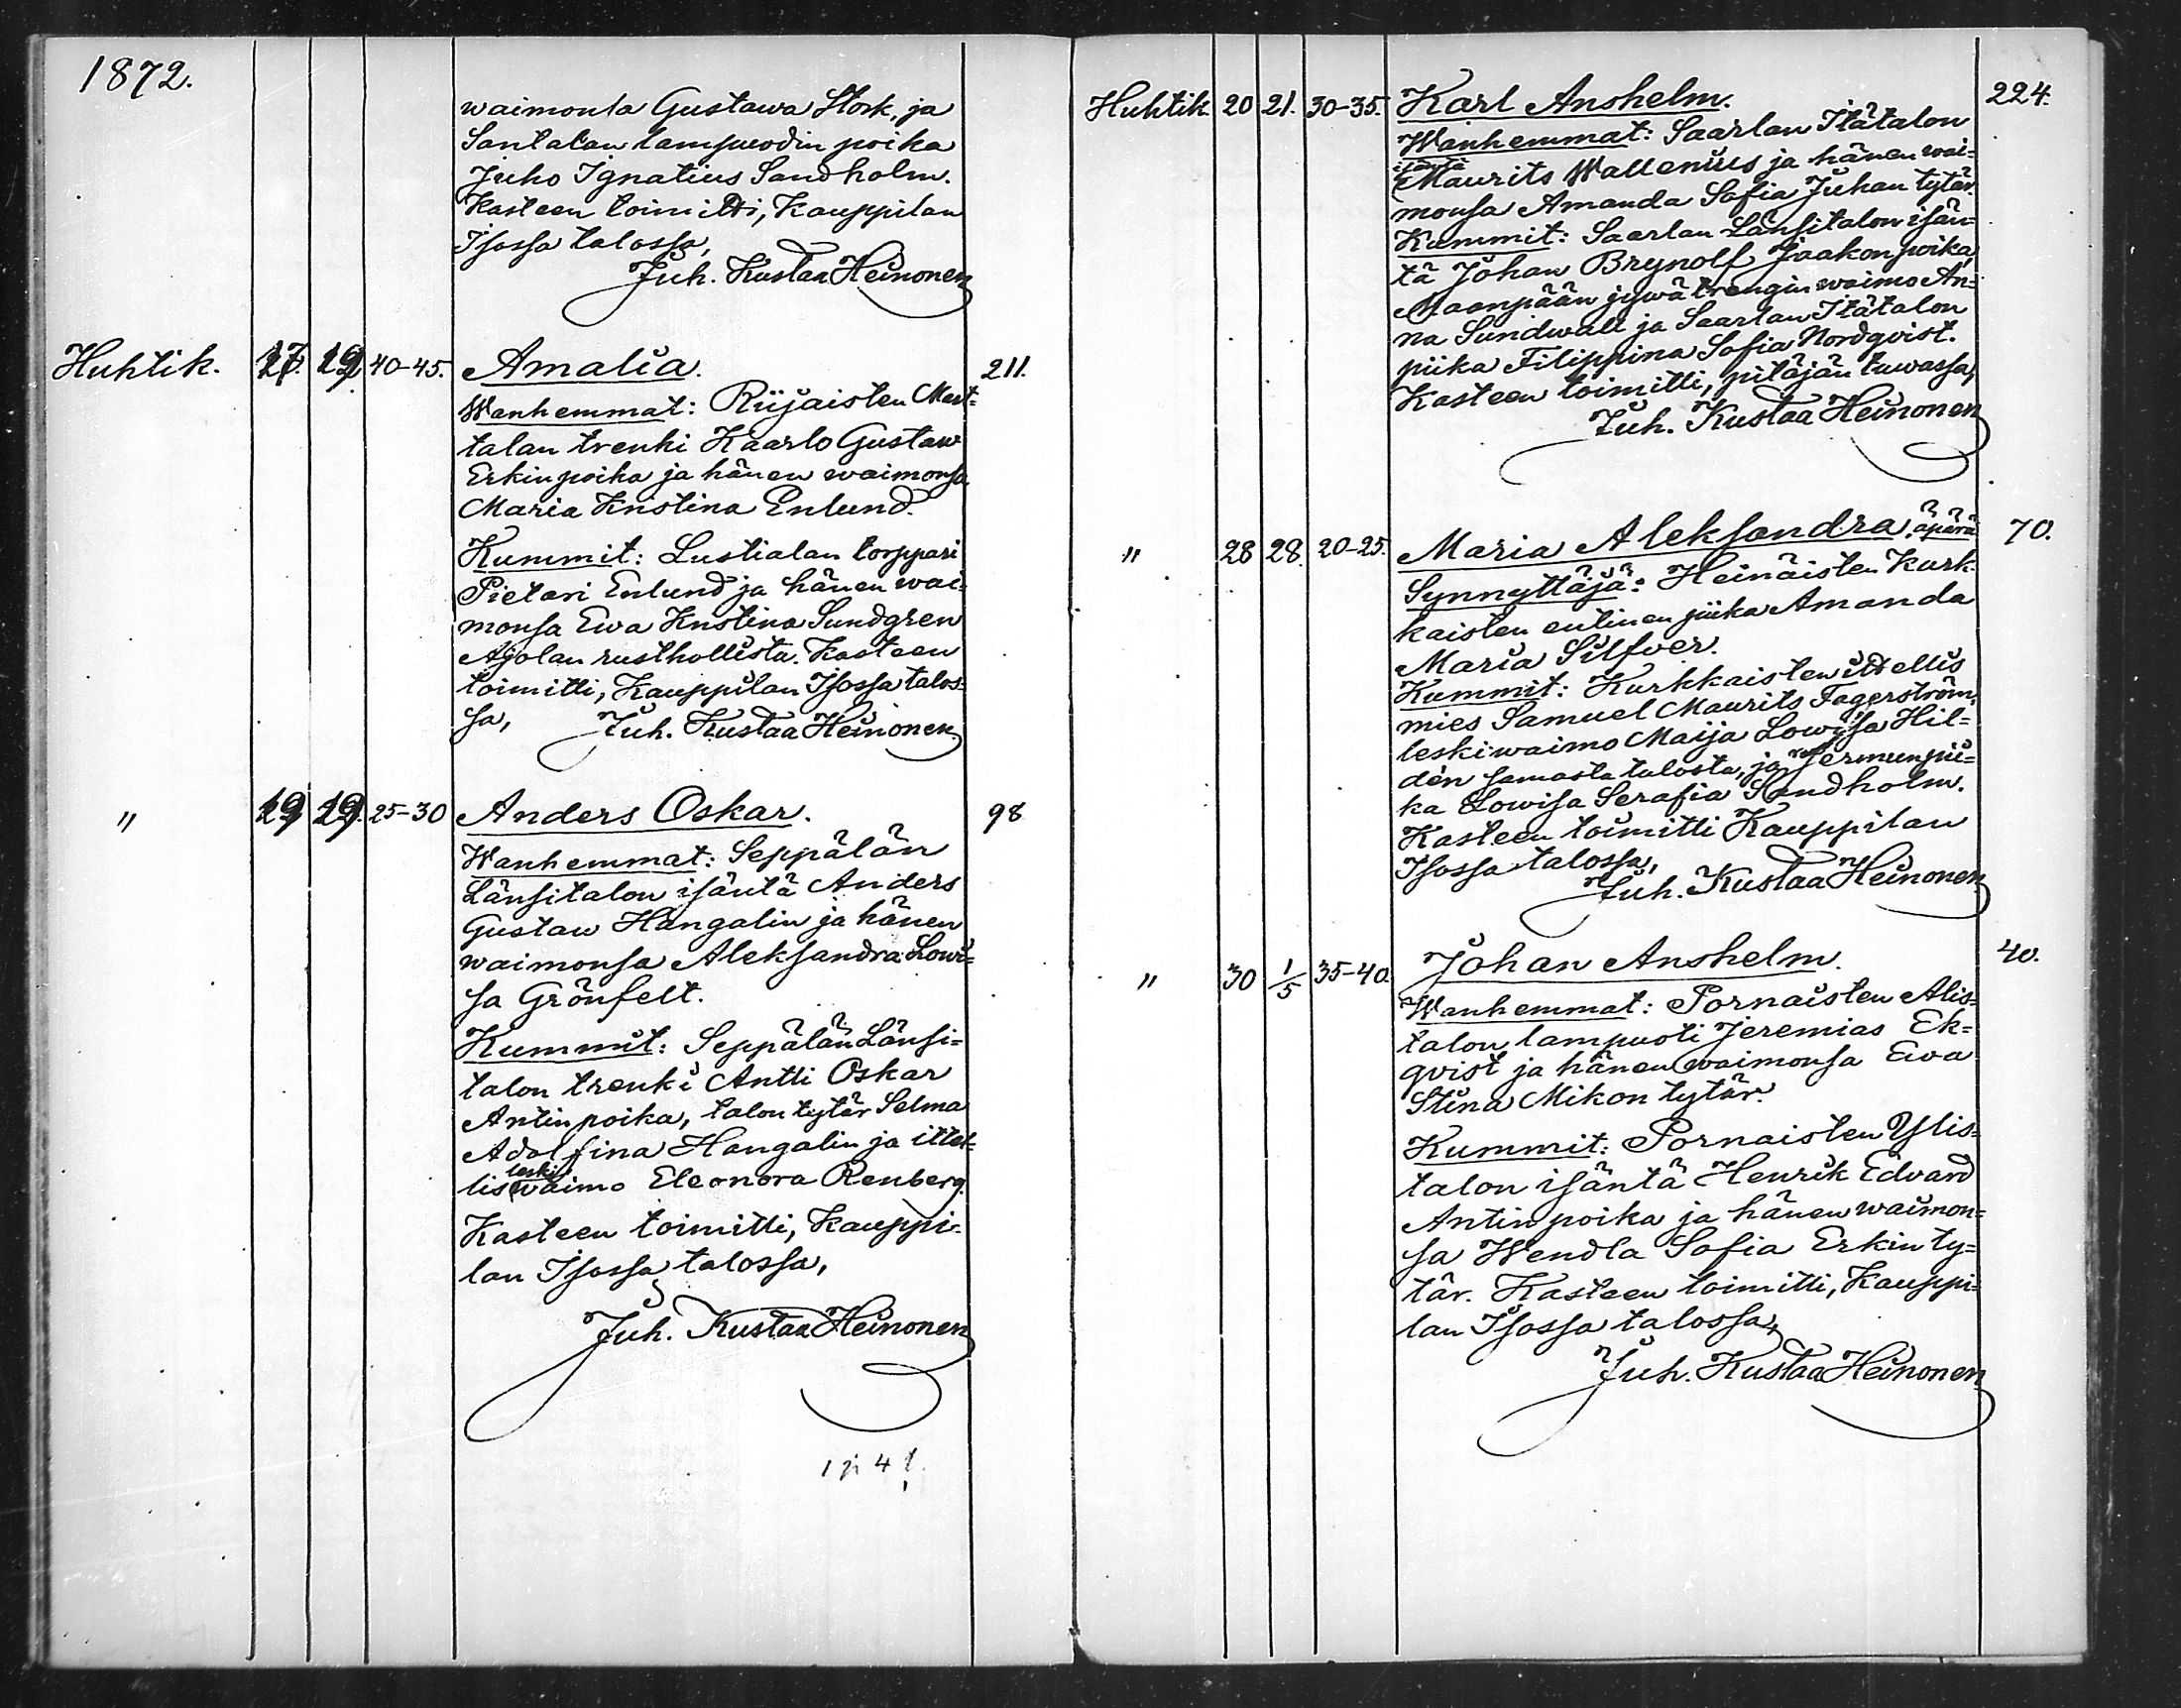 1872.
waimonsa Gustawa Stork, ja
Santalan lampuodin poika
Juho Ignatius Sandholm.
Kasteen toimitti, Kauppilan
Isossa talossa,
Juh. Kustaa Heinonen
Huhtik. 17. 19 40-45. Amalia. 211.
Wanhemmat: Riijaisten Mart=
talan trenki Kaarlo Gustaw
Erkinpoika ja hänen waimonsa
Maria Kristina Enlund.
Kummit: Lustialan torppari
Pietari Enlund ja hänen wai=
monsa Ewa Kristina Sundgren
Ajolan rusthollista. Kasteen
toimitti, Kauppilan Isossa talos=
sa, Juh. Kustaa Heinonen.
" 19 19. 25-30 Anders Oskar. 98
Wanhemmat: Seppälän
Länsitalon isäntä Anders
Gustaw Hangalin ja hänen
waimonsa Aleksandra Lowi=
sa Grönfelt.
Kummit: Seppälän Länsi=
talon trenki Antti Oskar
Antinpoika, talon tytär Selma
Adolfina Hangalin ja ittel=
lis leskiwaimo Eleonora Renberg.
Kasteen toimitti, Kauppi=
lan Isossa talossa,
Juh. Kustaa Heinonen
Huhtik. 20 21. 30-35. Karl Anshelm. 224.
Wanhemmat: Saarlan Itätalon
isäntä Maurits Wallenius ja hänen wai=
monsa Amanda Sofia Juhan tytär.
Kummit: Saarlan Länsitalon isän=
tä Johan Brynolf Jaakon poika,
Maanpään jywä trengin waimo An=
na Sundwall ja Saarlan Itätalon
piika Filippina Sofia Nordqvist.
Kasteen toimitti, pitäjän tuwassa,
Juh. Kustaa Heinonen
" 28 28. 20-25. Maria Aleksandra, äpärä 70.
Synnyttäjä: Heinäisten Kurk=
kaisten entinen piika Amanda
Maria Silfver.
Kummit: Kurkkaisten ittellis
mies Samuel Maurits Fagerström,
leskiwaimo Maija Lowisa Hil=
dén samasta talosta, ja Jermun pii=
ka Lowisa Serafia Sandholm.
Kasteen toimitti Kauppilan
Isossa talossa,
Juh. Kustaa Heinonen
" 30 1/5 35-40. Johan Anshelm. 40.
Wanhemmat: Pornaisten Alis=
talon lampuoti Jeremias Ek=
qvist ja hänen waimonsa Ewa
Stina Mikon tytär.
Kummit: Pornaisten Ylis=
talon isäntä Henrik Edvard
Antin poika ja hänen waimon=
sa Wendla Sofia Erkin ty=
tär. Kasteen toimitti, Kauppi=
lan Isossa talossa,
Juh. Kustaa Heinonen